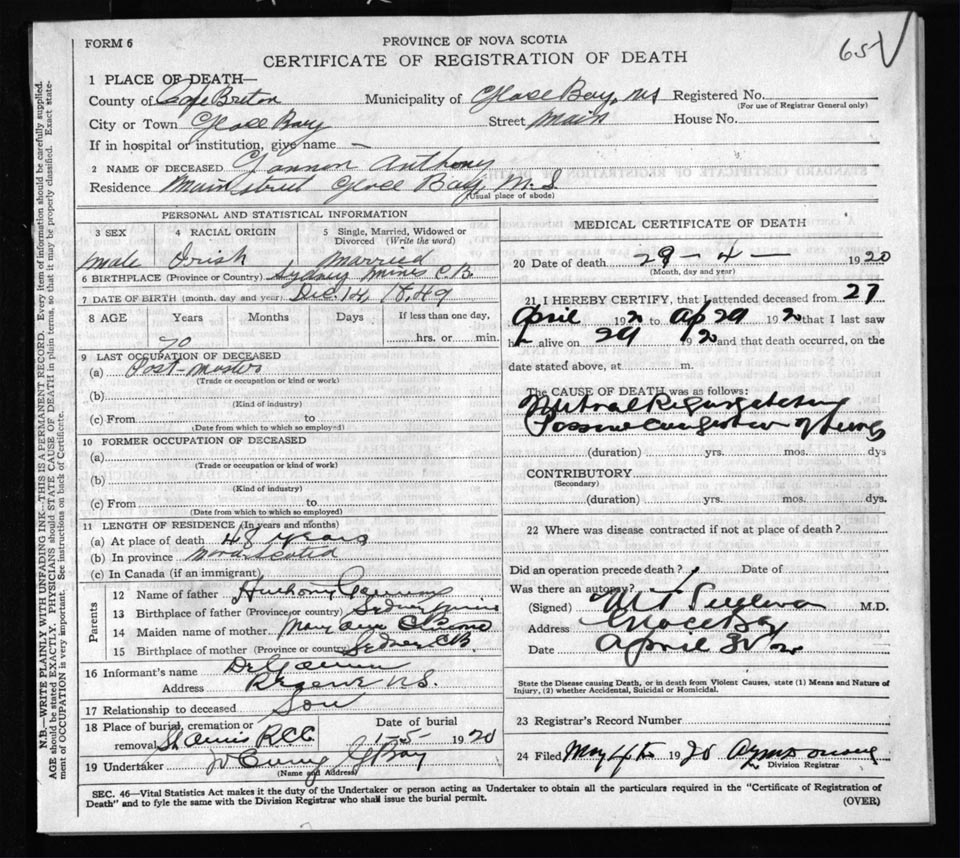 65
FORM 6
PROVINCE OF NOVA SCOTIA
CERTIFICATE OF REGISTRATION OF DEATH
1 PLACE OF DEATH—
County of Cape Breton Municipality of Glace Bay, NS Registered No.
(For use of Registrar General only)
City or Town Glace Bay Street Main House No.
If in hospital or institution, give name —
2 NAME OF DECEASED Gannon Anthony
Residence Main street Glace Bay, N.S.
(Usual place of abode)
PERSONAL AND STATISTICAL INFORMATION
3 SEX 4 RACIAL ORIGIN 5 Single, Married, Widowed or Divorced (Write the word)
Male Irish Married
6 BIRTHPLACE (Province or Country) Sydney Mines C.B.
7 DATE OF BIRTH (month, day and year) Dec. 14, 1849
8 AGE Years Months Days If less than one day,
70 hrs. or min.
9 LAST OCCUPATION OF DECEASED
(a) Post-Master
(Trade or occupation or kind or work)
(b)
(Kind of industry)
(c) From to
(Date from which to so employed)
10 FORMER OCCUPATION OF DECEASED
(a)
(Trade or occupation or kind of work)
(b)
(Kind of industry)
(c) From to
(Date from which to which so employed)
11 LENGTH OF RESIDENCE (In years and months)
(a) At place of death 48 years
(b) In province Nova Scotia
(c) In Canada (if an immigrant)
Parents
12 Name of father Anthony Gannon
13 Birthplace of father (Province or country) Sydney Mines
14 Maiden name of mother Mary Ann
15 Birthplace of mother (Province or country) C.B.
16 Informant's name Dr Gannon
Address N.S.
17 Relationship to deceased Son
18 Place of burial, cremation or removal St Anns R.C.C. Date of burial 1-5- 1920
19 Undertaker Curry G Bay
(Name and Address)
MEDICAL CERTIFICATE OF DEATH
20 Date of death 29 - 4 - 1920
(Month, day and year)
21 I HEREBY CERTIFY, that I attended deceased from 27
April 1920 to Ap 29 1920 that I last saw
h alive on 29 1920 and that death occurred, on the
date stated above, at m.
The CAUSE OF DEATH was as follows:
Mitral Regurgitation
Passive congestion of lungs
(duration) yrs. mos. dys
CONTRIBUTORY
(Secondary)
(duration) yrs. mos. dys.
22 Where was disease contracted if not at place of death?
Did an operation precede death? Date of
Was there an autopsy?
(Signed) M.D.
Address Glace Bay
Date April 30
State the Disease causing Death, or in death from Violent Causes, state (1) Means and Nature of Injury, (2) whether Accidental, Suicidal or Homicidal.
23 Registrar's Record Number
24 Filed May 4th 1920
Division Registrar
SEC. 46—Vital Statistics Act makes it the duty of the Undertaker or person acting as Undertaker to obtain all the particulars required in the "Certificate of Registration of
Death" and to fyle the same with the Division Registrar who shall issue the burial permit.
(OVER)
N.B.—WRITE PLAINLY WITH UNFADING INK—THIS IS A PERMANENT RECORD. Every item of information should be carefully supplied.
AGE should be stated EXACTLY. PHYSICIANS should STATE CAUSE OF DEATH in plain terms, so that it may be properly classified. Exact statement of OCCUPATION is very important. See instructions on back of Certificate.